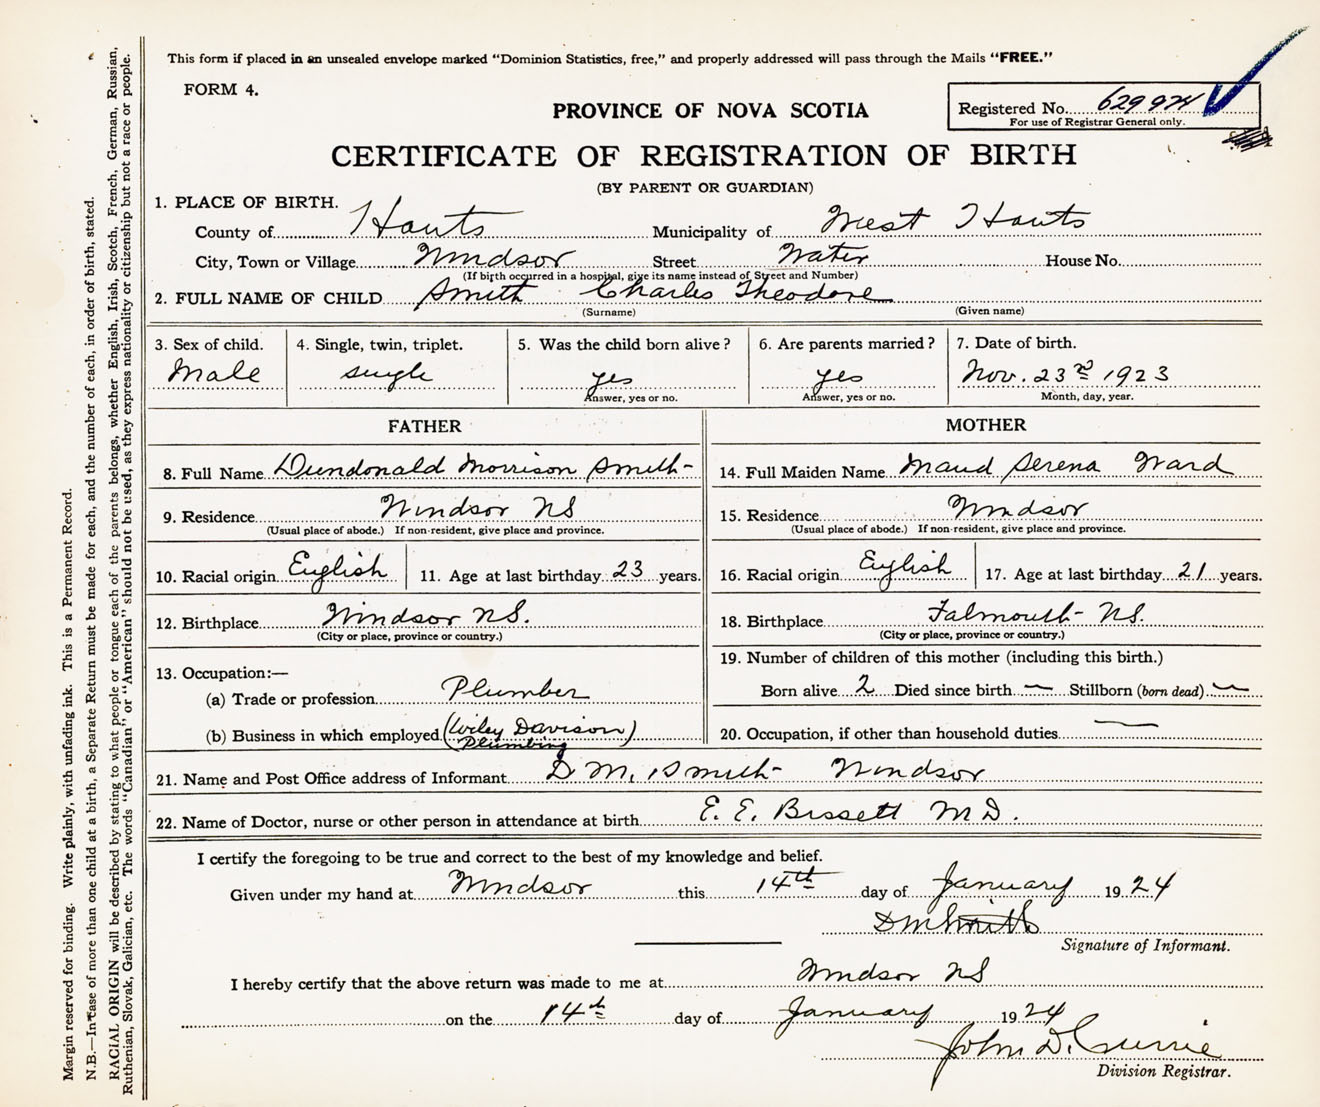 This form if placed in an unsealed envelope marked "Dominion Statistics, free," and properly addressed will pass through the Mails "FREE."
FORM 4.
PROVINCE OF NOVA SCOTIA
Registered No. 629974
For use of Registrar General only.
CERTIFICATE OF REGISTRATION OF BIRTH
(BY PARENT OR GUARDIAN)
1. PLACE OF BIRTH.
County of Hants Municipality of West Hants
City, Town or Village Windsor Street Water House No.
(If birth occurred in a hospital, give its name instead of Street and Number)
2. FULL NAME OF CHILD Smith Charles Theodore
(Surname) (Given name)
3. Sex of child. 4. Single, twin, triplet. 5. Was the child born alive? 6. Are parents married? 7. Date of birth.
Male single yes yes Nov. 23rd 1923
Answer, yes or no. Answer, yes or no. Month, day, year.
FATHER MOTHER
8. Full Name Dundonald Morrison Smith 14. Full Maiden Name Maud Serena Ward
9. Residence Windsor NS 15. Residence Windsor
(Usual place of abode.) If non-resident, give place and province. (Usual place of abode.) If non-resident, give place and province.
10. Racial origin English 11. Age at last birthday 23 years. 16. Racial origin English 17. Age at last birthday 21 years.
12. Birthplace Windsor NS. 18. Birthplace Falmouth NS.
(City or place, province or country.) (City or place, province or country.)
13. Occupation:— 19. Number of children of this mother (including this birth.)
(a) Trade or profession Plumber Born alive 2 Died since birth — Stillborn (born dead) —
(b) Business in which employed (Wiley Davison) Plumbing 20. Occupation, if other than household duties —
21. Name and Post Office address of Informant D M. Smith Windsor
22. Name of Doctor, nurse or other person in attendance at birth E. E. Bissett M D.
I certify the foregoing to be true and correct to the best of my knowledge and belief.
Given under my hand at Windsor this 14th day of January 1924
D M Smith
Signature of Informant.
I hereby certify that the above return was made to me at Windsor NS
on the 14th day of January 1924
John D. Currie
Division Registrar.
Margin reserved for binding. Write plainly, with unfading ink. This is a Permanent Record.
N.B.—In case of more than one child at a birth, a Separate Return must be made for each, and the number of each, in order of birth, stated.
RACIAL ORIGIN will be described by stating to what people or tongue each of the parents belongs, whether English, Irish, Scotch, French, German, Russian,
Ruthenian, Slovak, Galician, etc. The words "Canadian" or "American" should not be used, as they express nationality or citizenship but not a race or people.